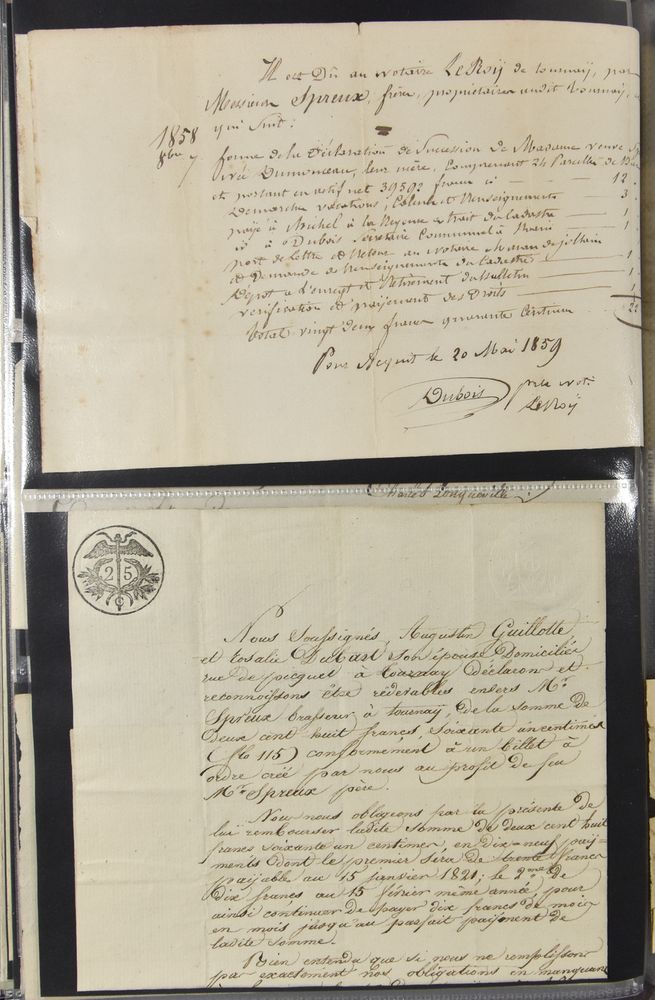 Il est Dû au notaire LeRoÿ de tournaÿ, par
Messieurs Spreux, frères, propriétaires audit tournaÿ,
qui sint:
1858
8bre 7
forme de la Déclaration de Succession de Madame veuve
née Dumonceau, leur mère, Comprenant 24 Parcelles de
et portant en actif net 39592 francs ci 12
Demarches vacations, et Renseignements 3
payé à Michel à la extrait du Cadastre 1
id à Dubois Secrétaire Communal à 1
port de Lettre et Retour au notaire de jollain
et Demande de Renseignements du Cadastre 1
Dépot à l'enregt et Retirement du Bulletin 1
vérification et paÿement des Droits 1
total vingt Deux francs quarante Centimes 22
Pour Acquit le 20 Mai 1859
Dubois pr le not.
LeRoÿ
25
Nous Soussignés, Augustin Guillotte
et Rosalie Dubart Son épouse Domiciliés
rue de à tournay Déclarons et
reconnoissons être redevables envers Mr.
Spreux brasseur à tournaÿ, de la somme de
deux cent huit francs, soixante un centimes
(flo 115) conformement à un billet à
ordre créé par nous au profit de feu
Mr. Spreux père.
Nous nous obligeons par la présente de
lui rembourser ladite somme de deux cent huit
francs soixante un centimes en dix-neuf paÿ=
ments dont le premier sera de trente francs
paÿable au 15 janvier 1821; le 2me. de
dix francs au 15 février même année, pour
ainsi continuer de payer dix francs de mois
en mois jusqu'au parfait paiment de
ladite somme.
Bien entendu que si nous ne remplissons
pas exactement nos obligations en manquant